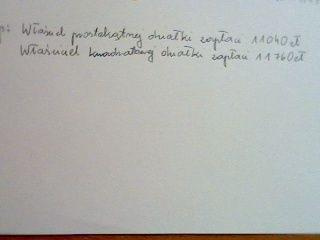 p: Właściel prostokątnej działki zapłaci 11040 zł
Właściciel kwadratowej działki zapłaci 11760 zł